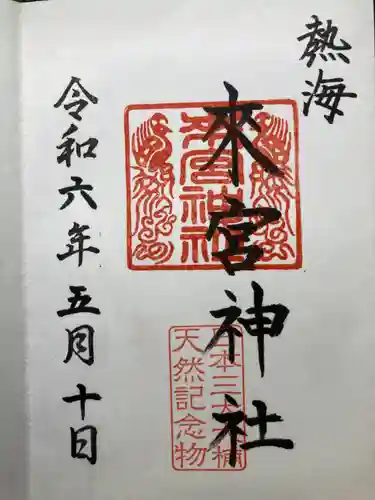 熱海
來宮神社
來宮神社
日本三大樟
天然記念物
令和六年五月十日